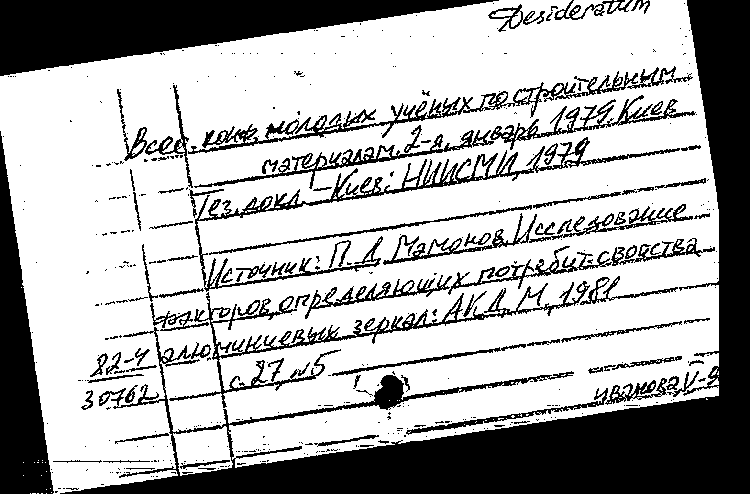 Desideratum
Всес. конф. молодых учёных по строительным
материалам. 2-я, январь 1979. Киев
Тез. докл. – Киев: НИИСМИ, 1979
Источник: П. Д. Мамонов. Исследование
факторов, определяющих потребит. свойства
82-4 алюминиевых зеркал: АКД, М, 1981
30762 с. 27, №5
иванова, V-9